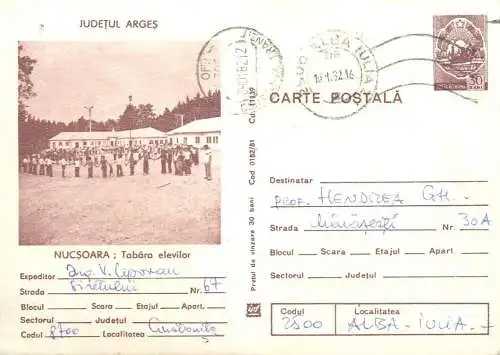 JUDEȚUL ARGEȘ
NUCȘOARA : Tabăra elevilor
Expeditor Ing. V.
Strada Siretului Nr. 67
Blocul Scara Etajul Apart.
Sectorul Județul
Codul 8700 Localitatea Constanța
Prețul de vînzare 30 bani Cod 0182/81 Cd. 11139
ALBA IULIA
2500
18.1.82.16
CARTE POȘTALĂ
50
Destinatar
PROF. HENDREA GH.
Strada Mărășești Nr 30A
Blocul Scara Etajul Apart.
Sectorul Județul
Codul Localitatea
2500 ALBA-IULIA-